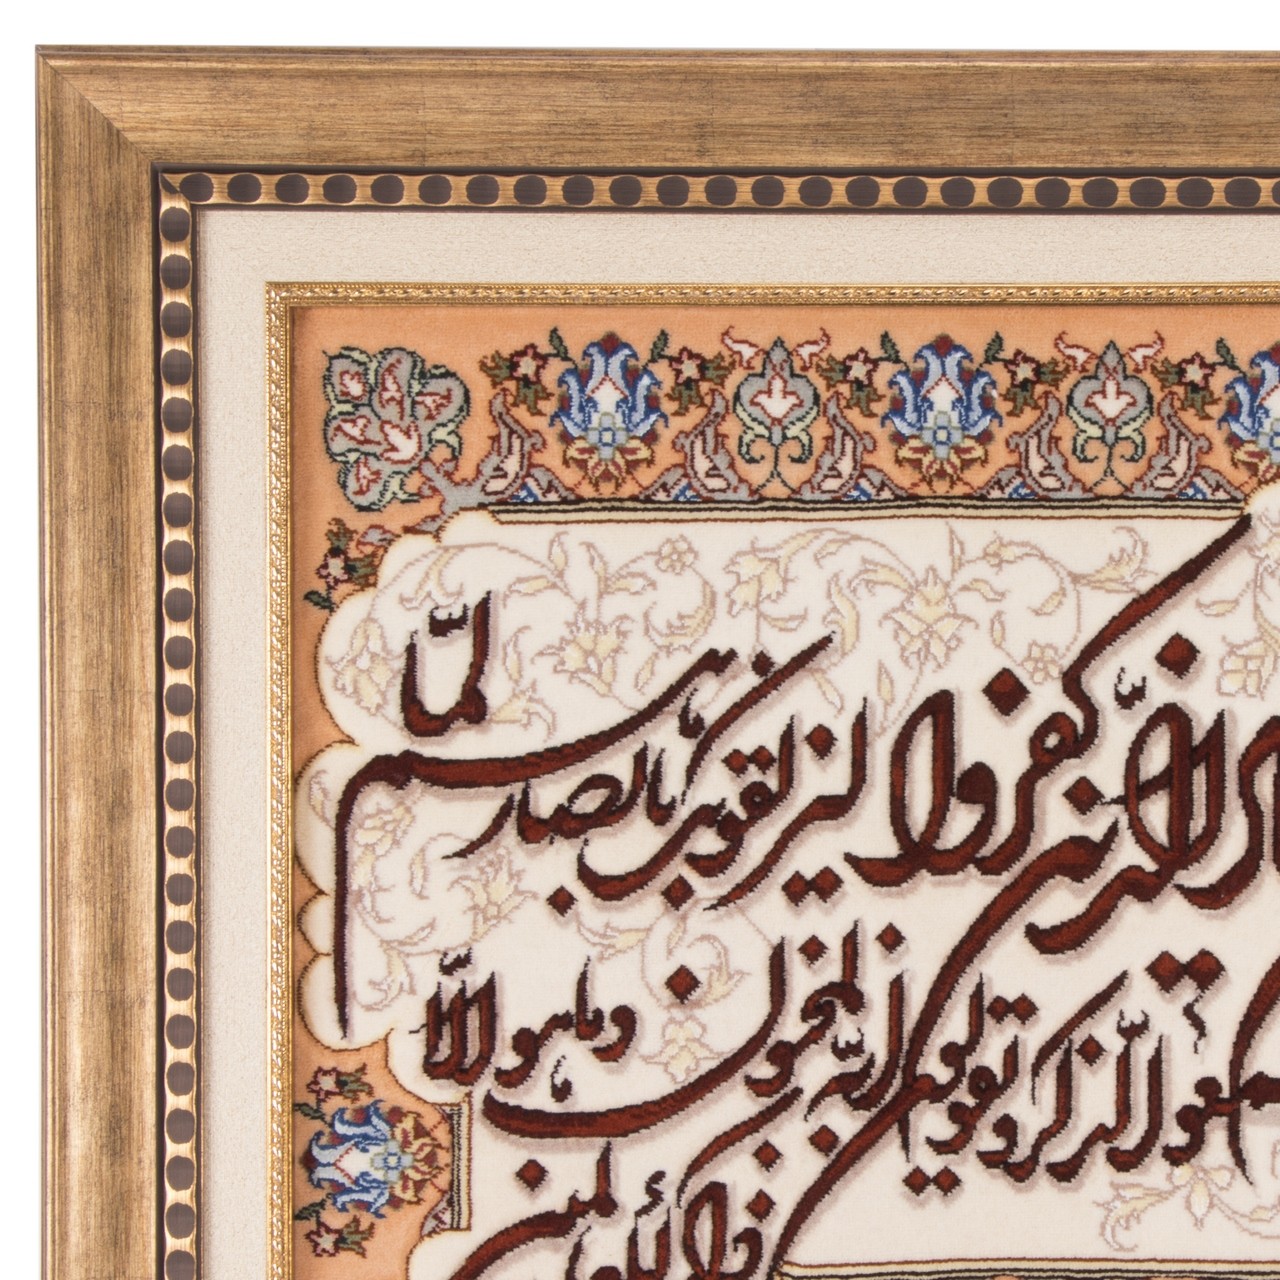 الذین کفروا لیزلقونک بابصارهم لمّا
الذّکر و یقولون انّه لمجنون و ما هو الّا